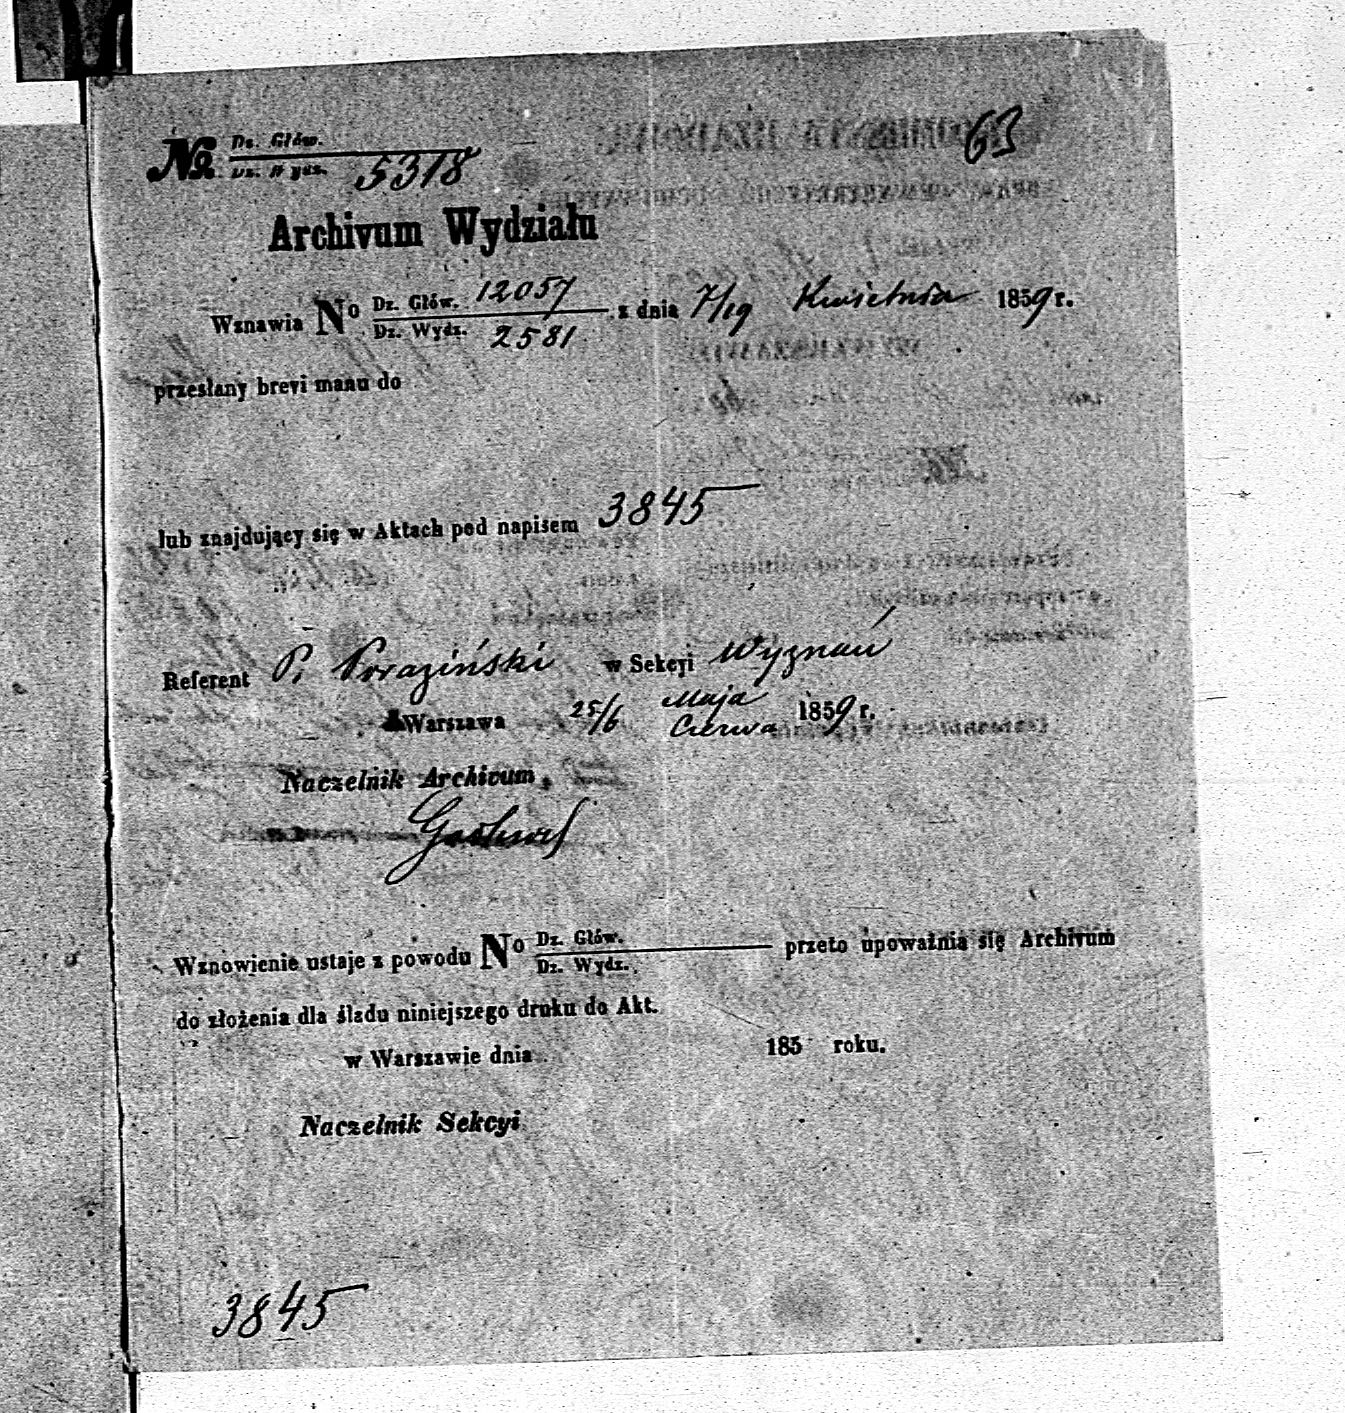 63
No Dz. Głów.
Dz. Wydz. 5318
Archivum Wydziału
Wznawia No Dz. Głów. 12057 z dnia 7/19 Kwietnia 1859 r.
Dz. Wydz. 2581
przesłany brevi manu do
lub znajdujący się w Aktach pod napisem 3845
Referent P. Poraziński w Sekcyi Wyznań
Warszawa 25/6 Maja 1859 r.
Czerwa
Naczelnik Archivum,
Wznowienie ustaje z powodu No Dz. Głów. przeto upoważnia się Archivum
Dz. Wydz.
do złożenia dla śladu niniejszego druku do Akt.
w Warszawie dnia 185 roku.
Naczelnik Sekcyi
3845